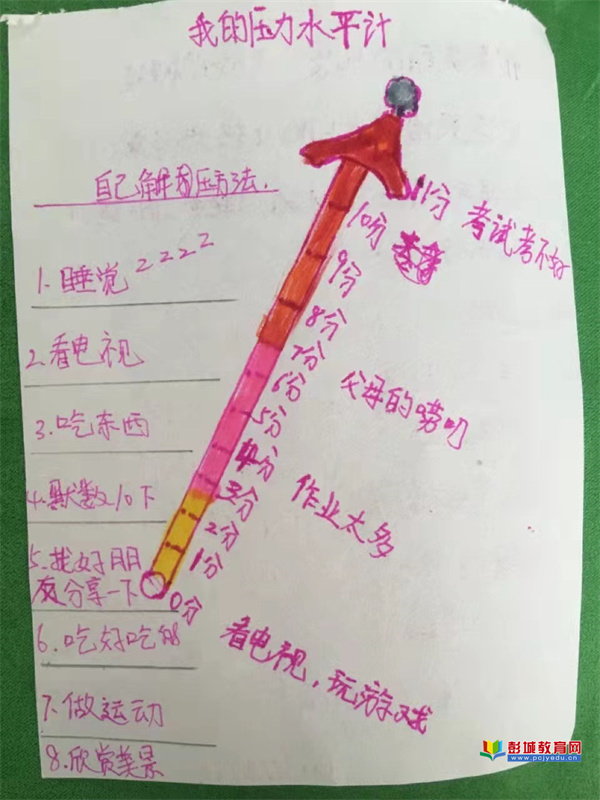 我的压力水平计
自己解围压方法.
1.睡觉 zzzz
2.看电视
3.吃东西
4.默数10下
5.找好朋
友分享一下
6.吃好吃的
7.做运动
8.欣赏美景
11分 考试考不好
10分
9分
8分
7分 父母的唠叨
6分
5分
4分
3分 作业太多
2分
1分
0分 看电视，玩游戏
彭城教育网
www.pcjyedu.cn